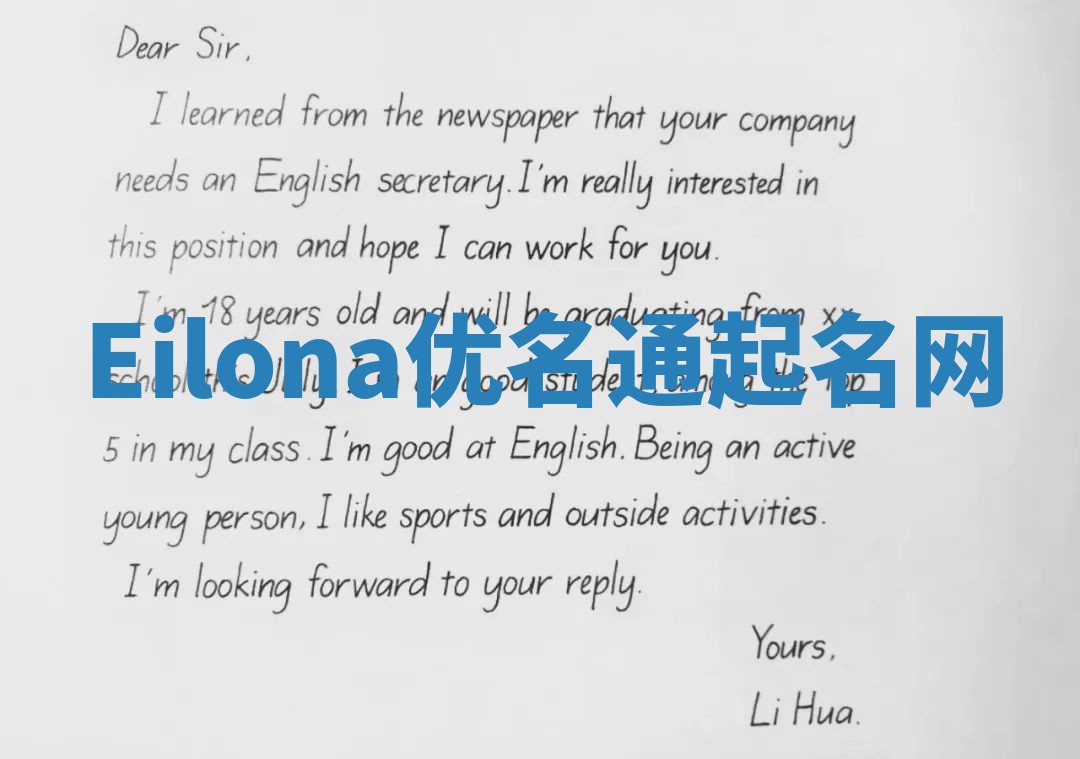 Dear Sir,
I learned from the newspaper that your company
needs an English secretary. I'm really interested in
this position and hope I can work for you.
I'm 18 years old and will be graduating from xx
Eilona优名通起名网
school this July. I'm an good student among the Top
5 in my class. I'm good at English. Being an active
young person, I like sports and outside activities.
I'm looking forward to your reply.
Yours,
Li Hua.